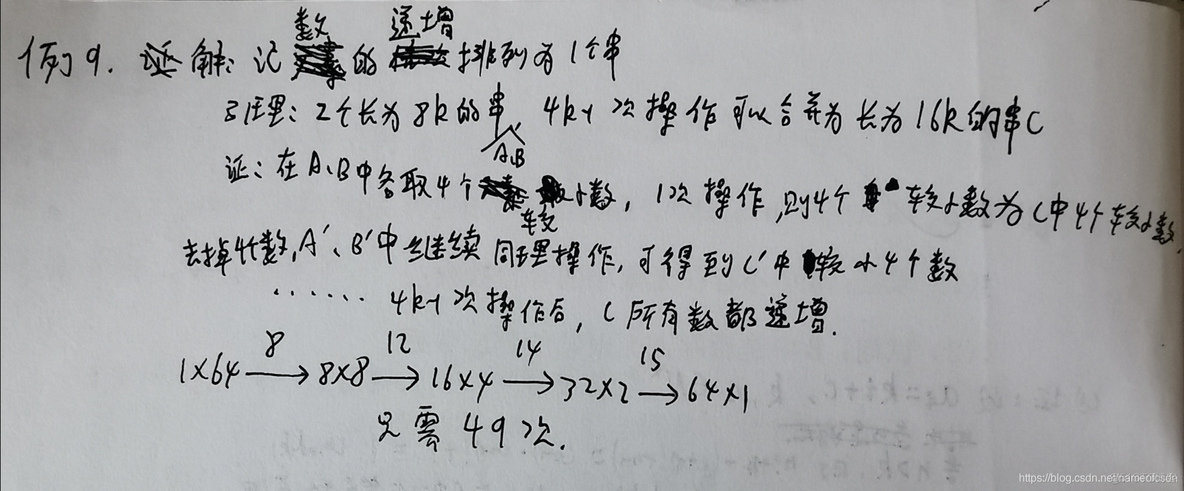 例9. 证 解: 记 数 的 递增 排列为1个串
引理: 2个长为8k的串 A、B 4k-1次操作可以合并为长为16k的串C
证: 在A、B中各取4个较小数, 1次操作, 则4个较小数为C中4个较小数.
去掉4个数, A′、B′中继续同理操作, 可得到C′中较小4个数
······ 4k-1次操作后, C所有数都递增.
1×64 ⟶(8) 8×8 ⟶(12) 16×4 ⟶(14) 32×2 ⟶(15) 64×1
只需49次.
https://blog.csdn.net/nameofcsdn